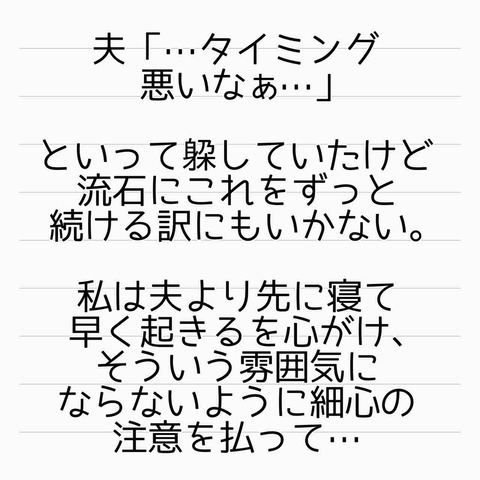 夫「…タイミング
悪いなぁ…」
といって躱していたけど
流石にこれをずっと
続ける訳にもいかない。
私は夫より先に寝て
早く起きるを心がけ、
そういう雰囲気に
ならないように細心の
注意を払って…